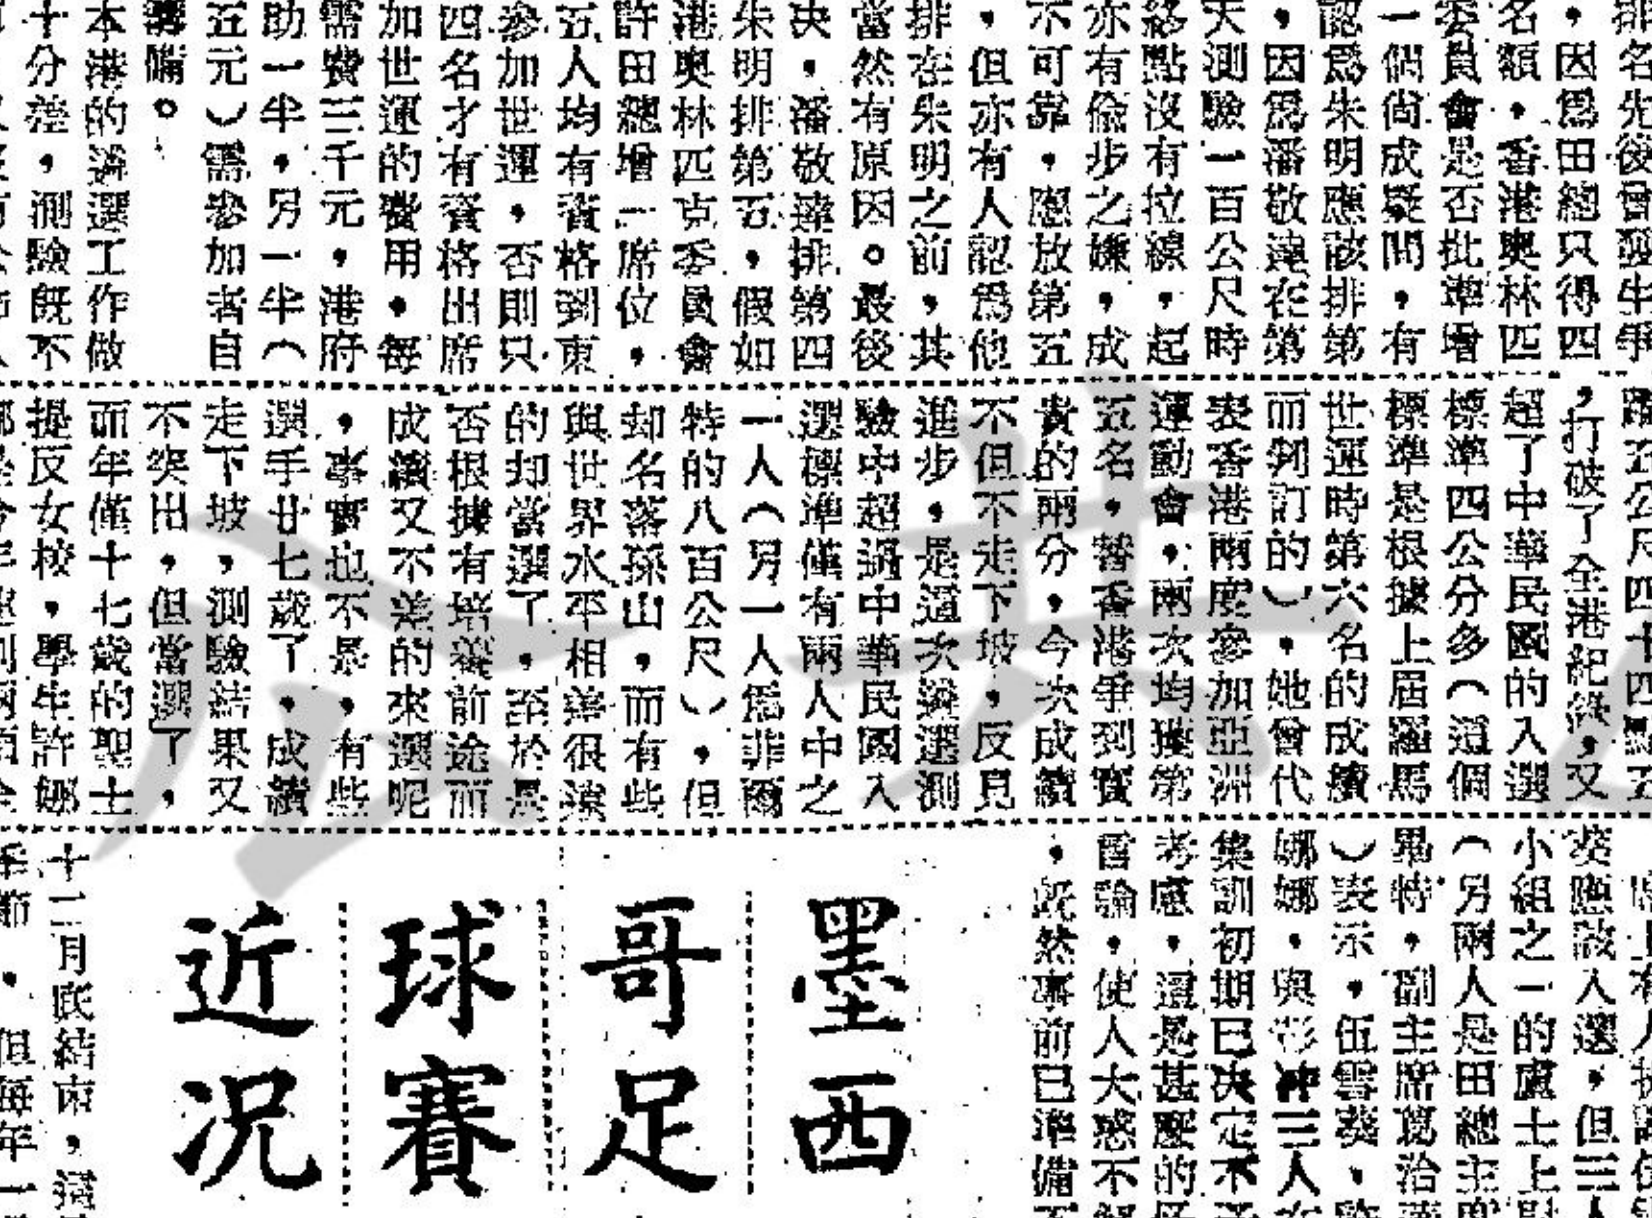 排名先後會發生爭
，因爲田總只得四
名額，香港奧林匹
委員會是否批準增
一個尙成疑問，有
認爲朱明應該排第
，因爲潘敬達在第
天測驗一百公尺時
終點沒有拉線，起
亦有偸步之嫌，成
不可靠，應放第五
，但亦有人認爲他
排在朱明之前，其
當然有原因。最後
决，潘敬達排第四
朱明排第五，假如
港奧林匹克委員會
許田總增一席位，
五人均有資格到東
參加世運，否則只
四名才有資格出席
加世運的費用，每
需費三千元，港府
助一半，另一半（
五元）需參加者自
籌備。
本港的遴選工作做
十分差，測驗旣不
五公尺四十四點五
，打破了全港紀錄，又
超了中華民國的入選
標準四公分多（這個
標準是根據上屆羅馬
世運時第六名的成績
而列訂的），她曾代
表香港兩度參加亞洲
運動會，兩次均獲第
五名，替香港爭到寶
貴的兩分，今次成績
不但不走下坡，反見
進步，是這次遴選測
驗中超過中華民國入
選標準僅有兩人中之
一人（另一人爲菲爾
特的八百公尺），但
却名落孫山，而有些
與世界水平相差很遠
的却當選了，至於是
否根據有培養前途而
成績又不差的來選呢
，事實也不是，有些
選手廿七歲了，成績
走下坡，測驗結果又
不突出，但當選了，
而年僅十七歲的聖士
提反女校，學生許娜
葵應該入選，但三人
小組之一的盧士上尉
（另兩人是田總主席
畢特，副主席葛治
）表示，伍雲葵，許
娜娜，與彭冲三人在
集訓初期已决定不
考慮，這是甚麼的
言論，使人大惑不解
，旣然事前已準備不
墨西
哥足
球賽
近况
十二月底結束，這
季節，但每年一